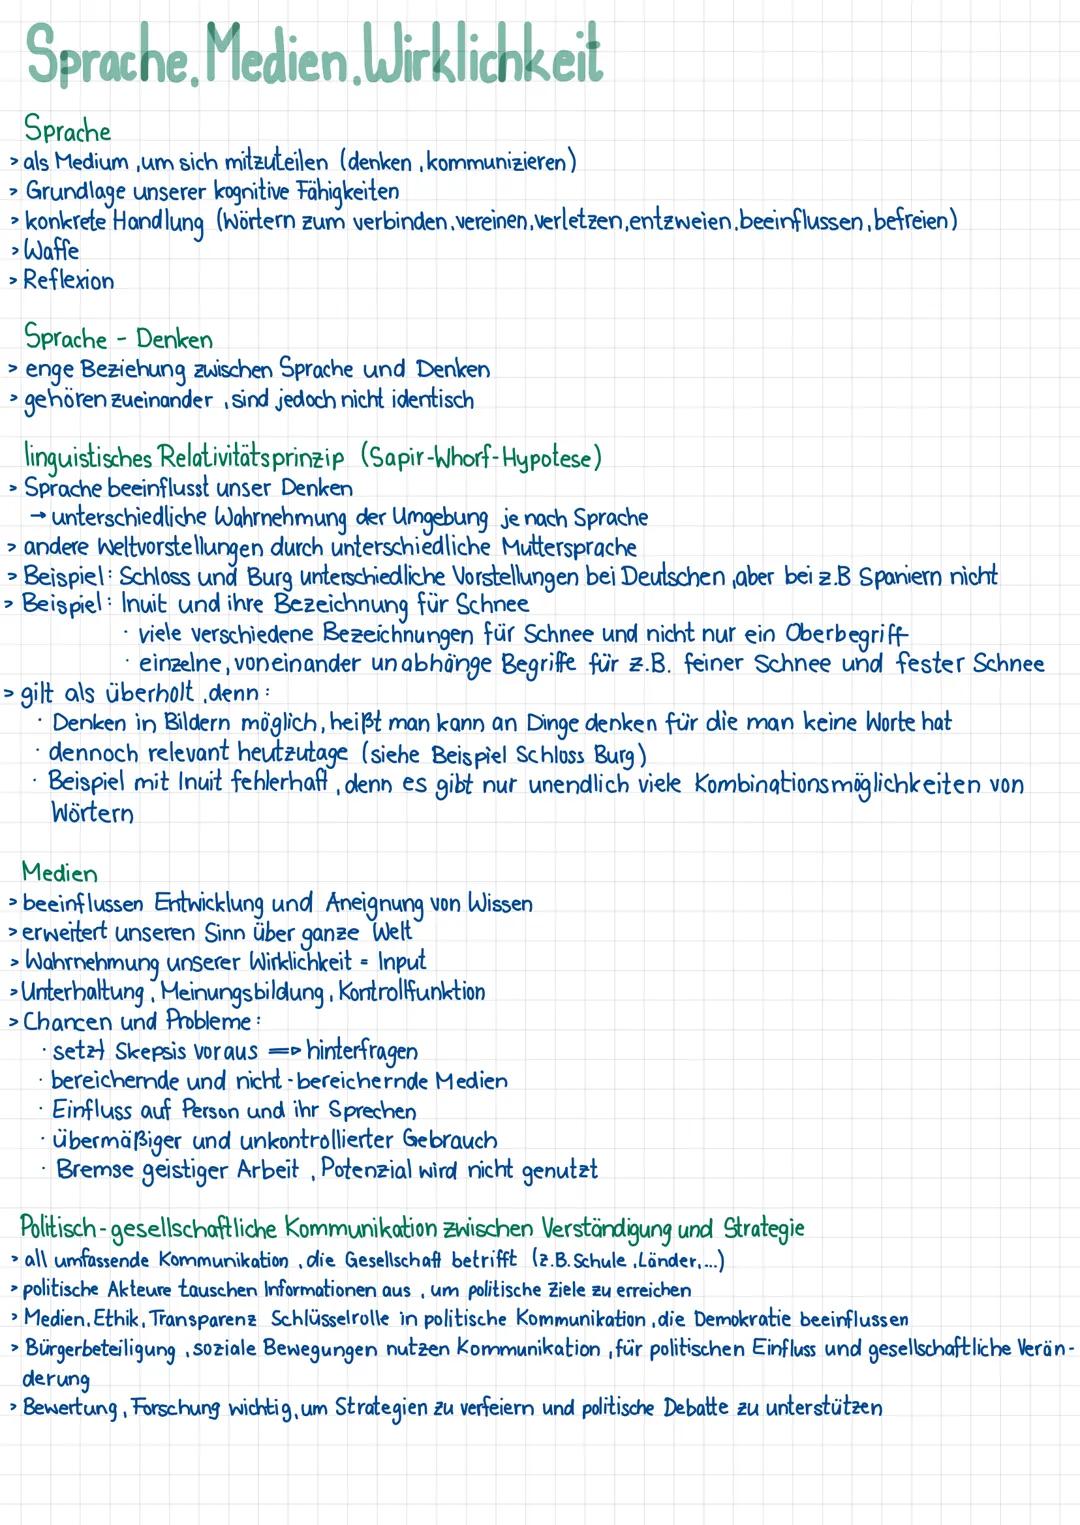 Sprache, Medien, Wirklichkeit
Sprache
> als Medium, um sich mitzuteilen (denken, kommunizieren)
> Grundlage unserer kognitive Fähigkeiten
> konkrete Handlung (Wörtern zum verbinden, vereinen, verletzen, entzweien, beeinflussen, befreien)
> Waffe
> Reflexion
Sprache - Denken
> enge Beziehung zwischen Sprache und Denken
> gehören zueinander, sind jedoch nicht identisch
linguistisches Relativitätsprinzip (Sapir-Whorf-Hypotese)
> Sprache beeinflusst unser Denken
→ unterschiedliche Wahrnehmung der Umgebung je nach Sprache
> andere Weltvorstellungen durch unterschiedliche Muttersprache
> Beispiel: Schloss und Burg unterschiedliche Vorstellungen bei Deutschen, aber bei z.B Spaniern nicht
> Beispiel: Inuit und ihre Bezeichnung für Schnee
· viele verschiedene Bezeichnungen für Schnee und nicht nur ein Oberbegriff
· einzelne, voneinander unabhänge Begriffe für z.B. feiner Schnee und fester Schnee
> gilt als überholt, denn:
· Denken in Bildern möglich, heißt man kann an Dinge denken für die man keine Worte hat
· dennoch relevant heutzutage (siehe Beispiel Schloss Burg)
· Beispiel mit Inuit fehlerhaft, denn es gibt nur unendlich viele Kombinationsmöglichkeiten von
Wörtern
Medien
> beeinflussen Entwicklung und Aneignung von Wissen
> erweitert unseren Sinn über ganze Welt
> Wahrnehmung unserer Wirklichkeit = Input
> Unterhaltung, Meinungsbildung, Kontrollfunktion
> Chancen und Probleme:
· setzt Skepsis voraus => hinterfragen
· bereichernde und nicht-bereichernde Medien
· Einfluss auf Person und ihr Sprechen
· übermäßiger und unkontrollierter Gebrauch
· Bremse geistiger Arbeit, Potenzial wird nicht genutzt
Politisch-gesellschaftliche Kommunikation zwischen Verständigung und Strategie
> all umfassende Kommunikation, die Gesellschaft betrifft (z.B. Schule, Länder,...)
> politische Akteure tauschen Informationen aus, um politische Ziele zu erreichen
> Medien, Ethik, Transparenz Schlüsselrolle in politische Kommunikation, die Demokratie beeinflussen
> Bürgerbeteiligung, soziale Bewegungen nutzen Kommunikation, für politischen Einfluss und gesellschaftliche Verän-
derung
> Bewertung, Forschung wichtig, um Strategien zu verfeiern und politische Debatte zu unterstützen